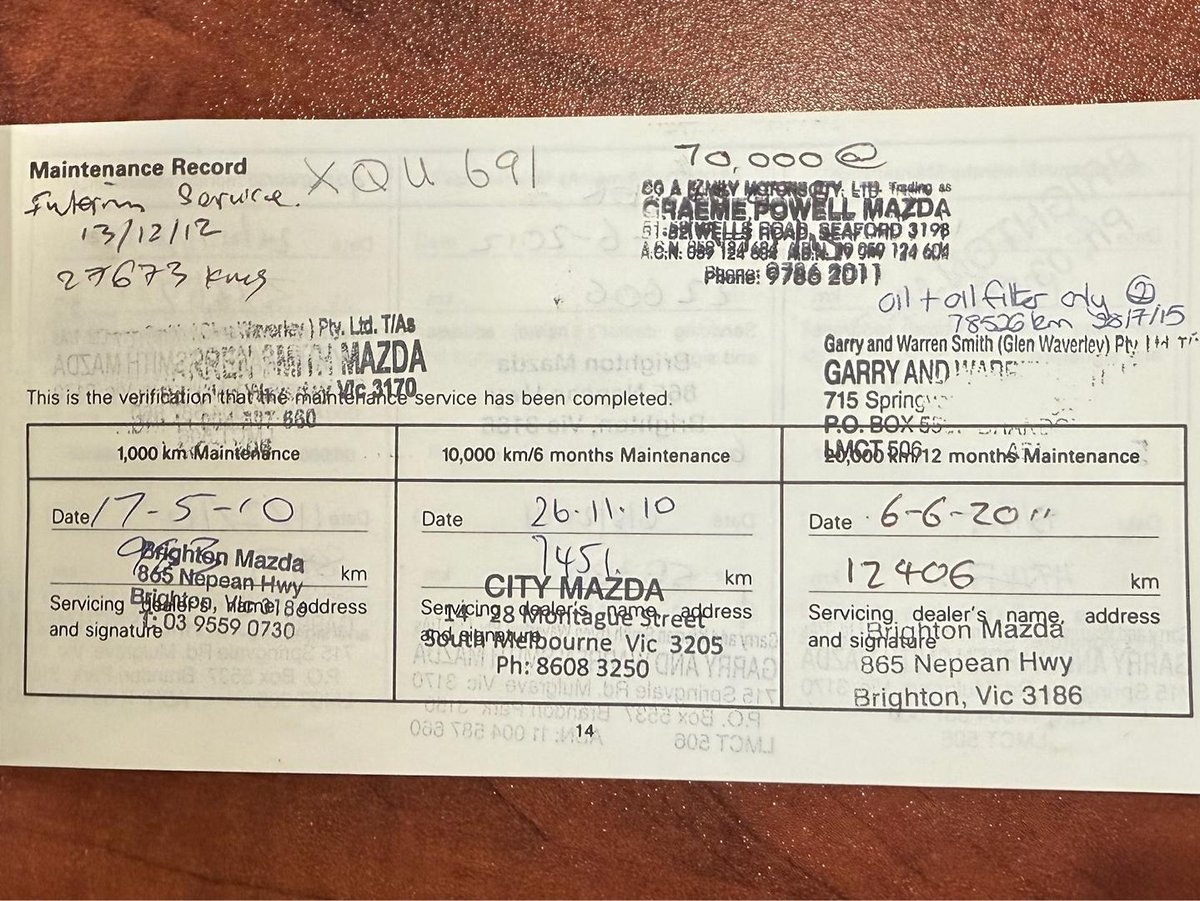 Maintenance Record
XQU 691
Interim Service.
13/12/12
27673 kms
Waverley) Pty. Ltd. T/As
SMITH MAZDA
Vic 3170
660
70,000 @
GRAEME POWELL MAZDA
WELLS ROAD, SEAFORD 3198
Phone: 9786 2011
oil + oil filter only
78526 km 28/7/15
Garry and Warren Smith (Glen Waverley) Pty Ltd T/
GARRY AND
715 Spring
P.O. BOX
LMCT 506
This is the verification that the maintenance service has been completed.
1,000 km Maintenance
Date 17-5-10
km
Servicing dealer's name, address
and signature
Brighton Mazda
865 Nepean Hwy
Brighton, Vic 3186
T: 03 9559 0730
10,000 km/6 months Maintenance
Date 26.11.10
7451 km
Servicing dealer's name, address
and signature
CITY MAZDA
14 - 28 Montague Street
South Melbourne Vic 3205
Ph: 8608 3250
20,000 km/12 months Maintenance
Date 6-6-2011
12406 km
Servicing dealer's name, address
and signature
Brighton Mazda
865 Nepean Hwy
Brighton, Vic 3186
14